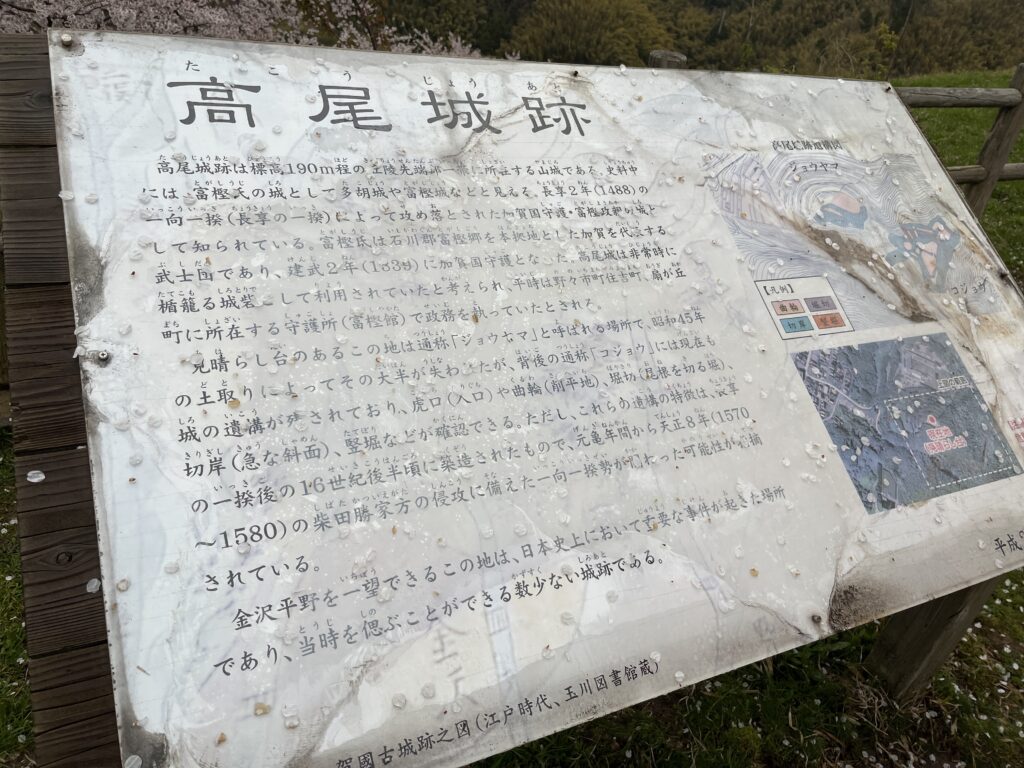 たこうじょうあと
高尾城跡
高尾城跡は標高190m程の丘陵先端部一帯に所在する山城である。史料中
には、富樫氏の城として多胡城や富樫城などと見える。長享2年(1488)の
一向一揆(長享の一揆)によって攻め落とされた加賀国守護・富樫政親の城と
して知られている。富樫氏は石川郡富樫郷を本拠地とした加賀を代表する
武士団であり、建武2年に加賀国守護となった。高尾城は非常時に
楯籠る城砦として利用されていたと考えられ、平時は野々市町住吉町、扇が丘
町に所在する守護所(富樫館)で政務を執っていたとされる。
見晴らし台のあるこの地は通称「ジョウヤマ」と呼ばれる場所で、昭和45年
の土取りによってその大半が失われたが、背後の通称「コジョウ」には現在も
城の遺構が残されており、虎口(入口)や曲輪(削平地)、堀切(尾根を切る堀)、
切岸(急な斜面)、竪堀などが確認できる。ただし、これらの遺構の特徴は、長享
の一揆後の16世紀後半頃に築造されたもので、元亀年間から天正8年(1570
～1580)の柴田勝家方の侵攻に備えた一向一揆勢が関わった可能性が指摘
されている。
金沢平野を一望できるこの地は、日本史上において重要な事件が起きた場所
であり、当時を偲ぶことができる数少ない城跡である。
賀國古城跡之図(江戸時代、玉川図書館蔵)
高尾城跡遺構図
ジョウヤマ
コジョウ
【凡例】
曲輪
堀切
切岸
竪堀
現在地
平成